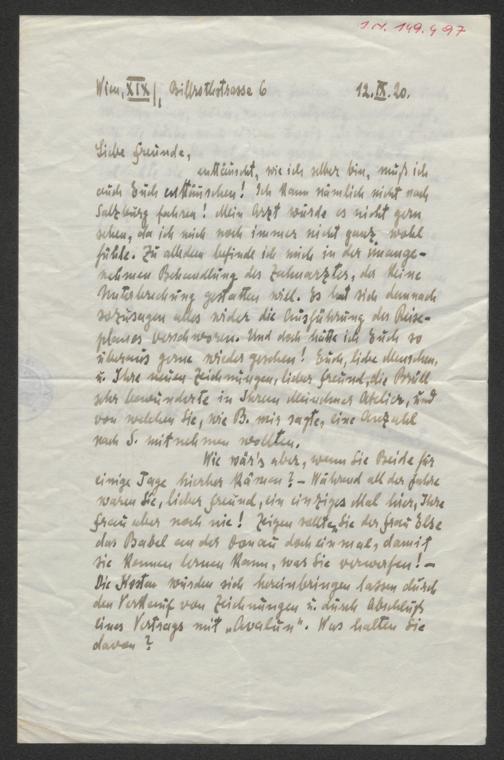 I.N. 149.497
Wien, XIX/1, Billrothstrasse 6 12.IX.20.
Liebe Freunde,
enttäuscht, wie ich selber bin, muß ich
auch Euch enttäuschen! Ich kann nämlich nicht nach
Salzburg fahren! Mein Arzt würde es nicht gern
sehen, da ich mich noch immer nicht ganz wohl
fühle. Zu alledem befinde ich mich in der unange-
nehmen Behandlung des Zahnarztes, der keine
Unterbrechung gestatten will. Es hat sich demnach
sozusagen alles wider die Ausführung des Reise-
planes verschworen. Und doch hätte ich Euch so
überaus gerne wieder gesehen! Euch, liebe Menschen,
u. Ihre neuen Zeichnungen, lieber Freund, die Brüll
sehr bewunderte in Ihrem Münchner Atelier, und
von welchen Sie, wie B. mir sagte, eine Anzahl
nach S. mitnehmen wollten.
Wie wär's aber, wenn Sie Beide für
einige Tage hierher kämen? – Während all der Jahre
waren Sie, lieber Freund, ein einziges Mal hier, Ihre
Frau aber noch nie! Zeigen sollten Sie der Frau Else
das Babel an der Donau doch einmal, damit
sie kennen lernen kann, was Sie verwerfen! –
Die Kosten würden sich hereinbringen lassen durch
den Verkauf von Zeichnungen u. durch Abschluß
eines Vertrags mit „Avalun". Was halten Sie
davon?